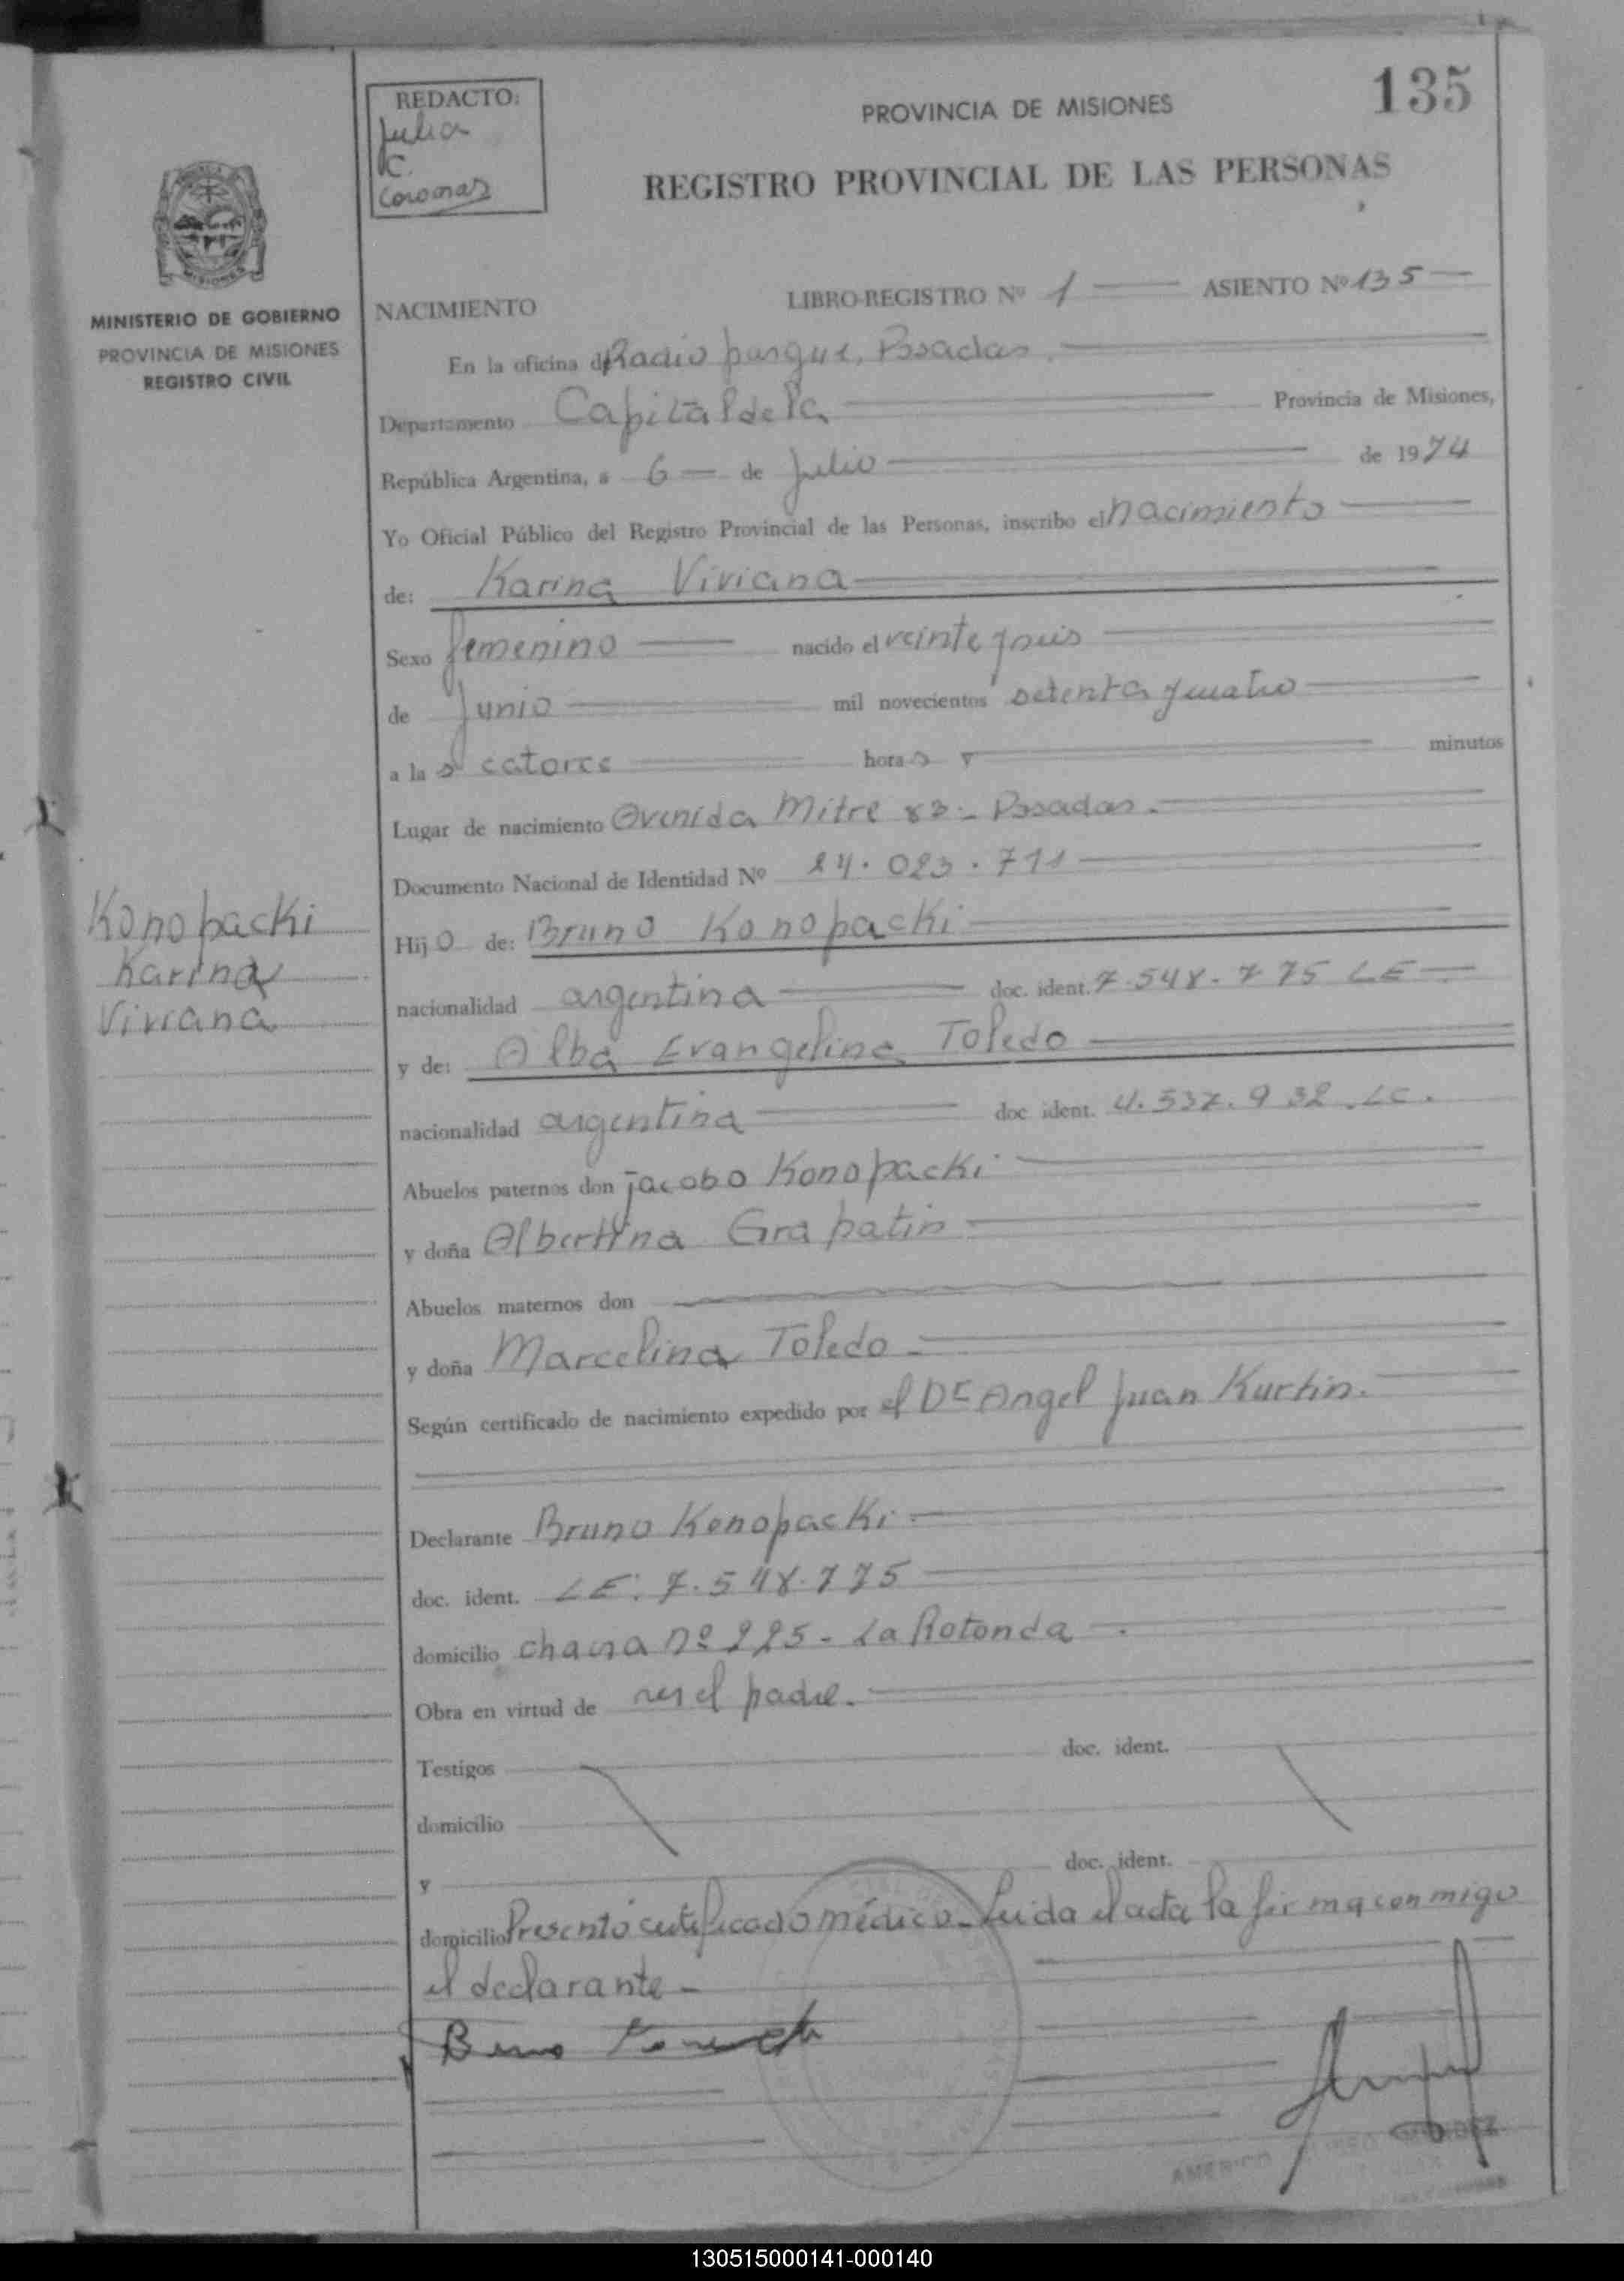 135
REDACTO:
Julia
C.
Coronas
PROVINCIA DE MISIONES
REGISTRO PROVINCIAL DE LAS PERSONAS
MISIONES
MINISTERIO DE GOBIERNO
PROVINCIA DE MISIONES
REGISTRO CIVIL
NACIMIENTO LIBRO-REGISTRO Nº 1 ASIENTO Nº 135
En la oficina d Radio parque, Posadas.
Departamento Capital de la Provincia de Misiones,
República Argentina, a 6 de julio de 1974
Yo Oficial Público del Registro Provincial de las Personas, inscribo el nacimiento
de: Karina Viviana
Sexo femenino nacido el veinte y seis
de Junio mil novecientos setenta y cuatro
a las catorce horas y minutos
Lugar de nacimiento Avenida Mitre 83 - Posadas.
Documento Nacional de Identidad Nº 24.023.711
Konopacki
Karina
Viviana
Hijo de: Bruno Konopacki
nacionalidad argentina doc. ident. 7.548.775 LE
y de: Alba Evangelina Toledo
nacionalidad argentina doc ident. 4.537.932.LC.
Abuelos paternos don jacobo Konopacki
y doña Albertina Grapatin
Abuelos maternos don
y doña Marcelina Toledo
Según certificado de nacimiento expedido por el Dr Angel Juan Kurtin.
Declarante Bruno Konopacki
doc. ident. LE: 7.548.775
domicilio chacra nº 225 - La Rotonda
Obra en virtud de ser el padre.
Testigos doc. ident.
domicilio
y doc. ident.
domicilio Presentó certificado médico - Leida el acta la firma conmigo
el declarante -
AMERICO
130515000141-000140